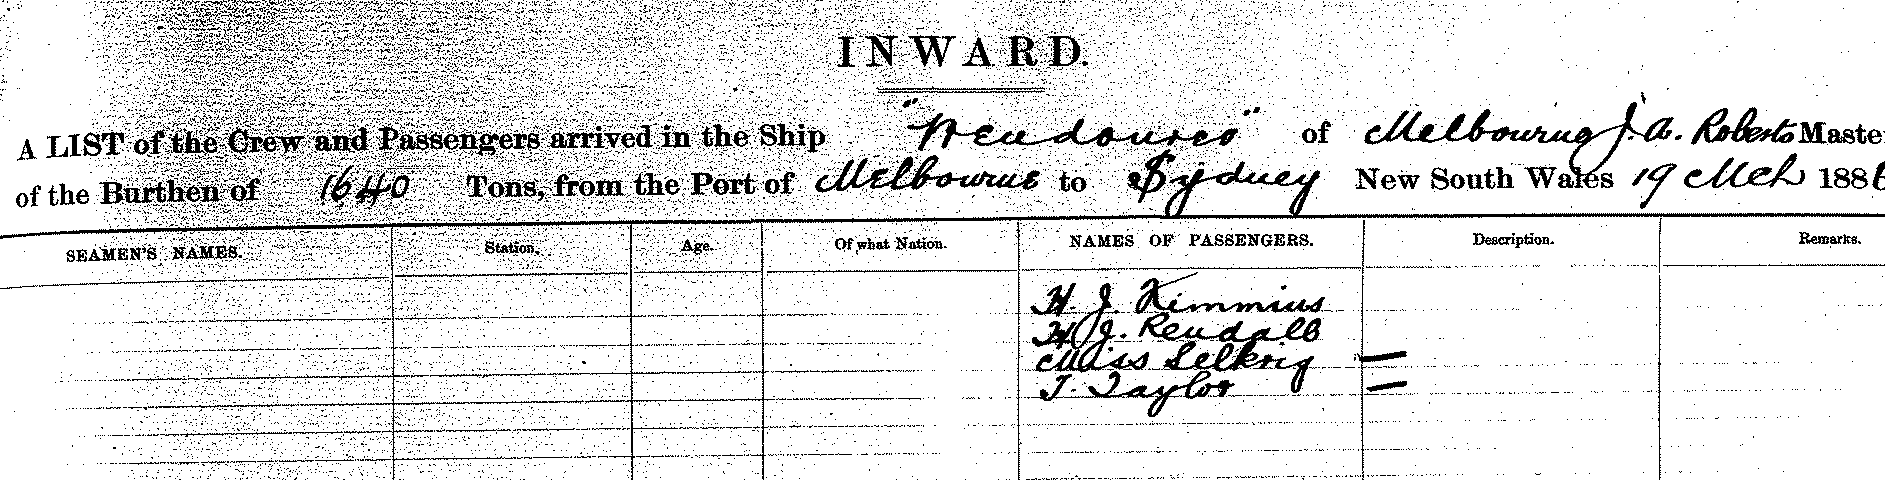 INWARD.
A LIST of the Crew and Passengers arrived in the Ship "Wendouree" of Melbourne J. A. Roberts Maste
of the Burthen of 1640 Tons, from the Port of Melbourne to Sydney New South Wales 19 Mch 1886
SEAMEN'S NAMES. Station. Age. Of what Nation. NAMES OF PASSENGERS. Description. Remarks.
H. J. Kimmins
H J. Rendall
Miss Selkrig —
T. Taylor —